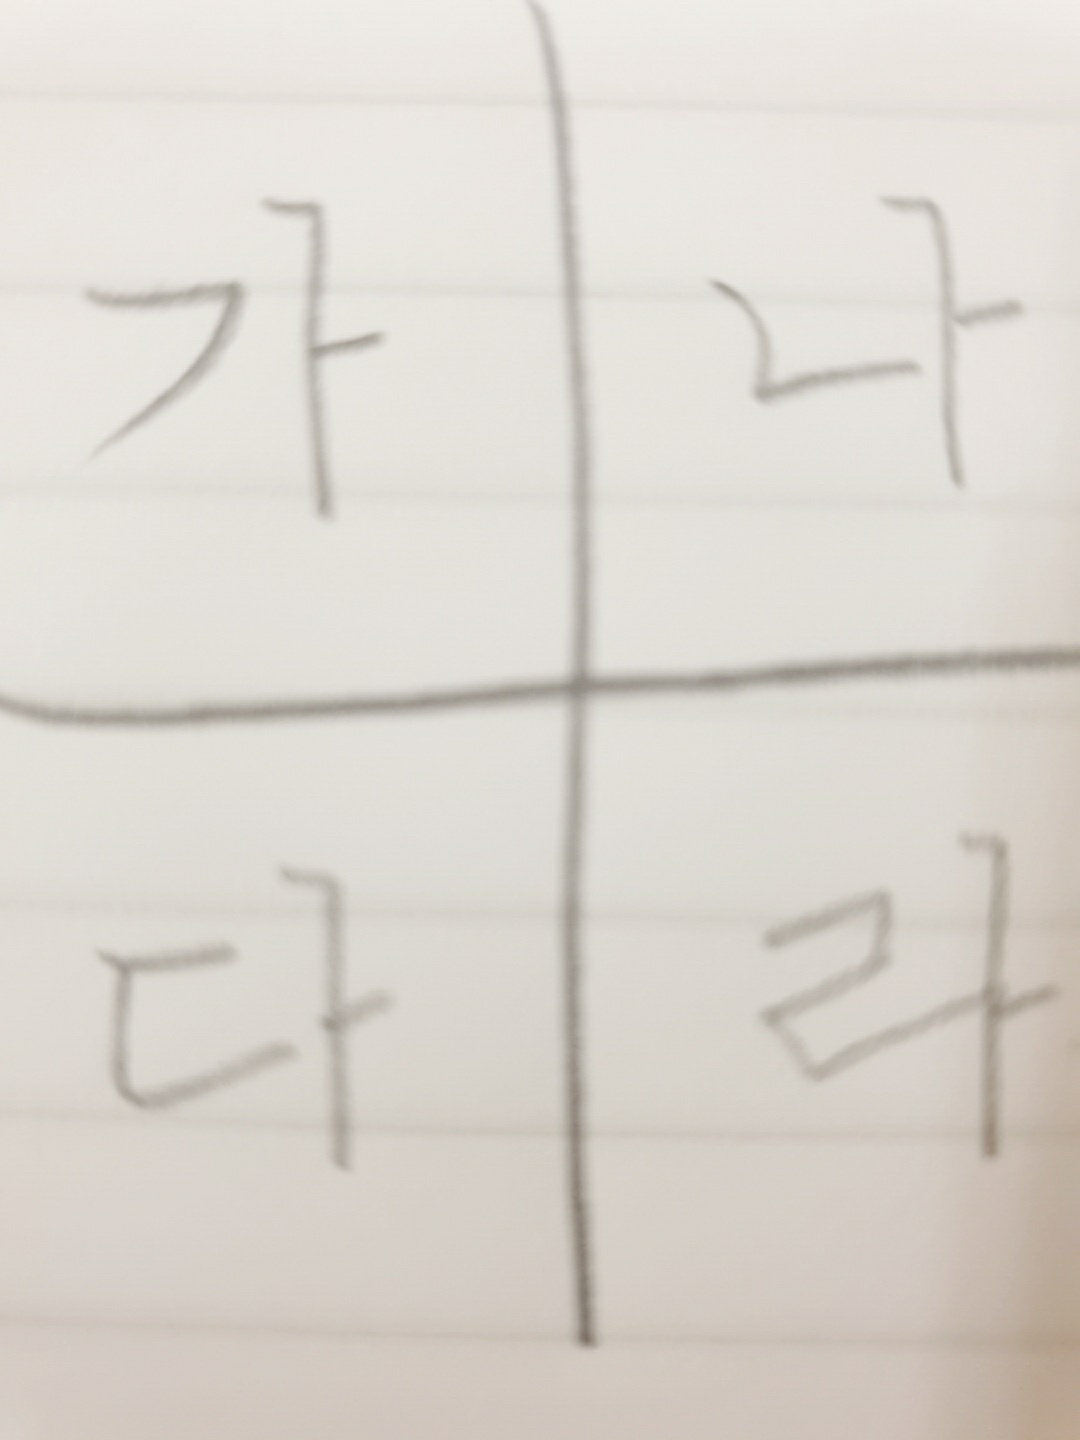 가 나
다 라